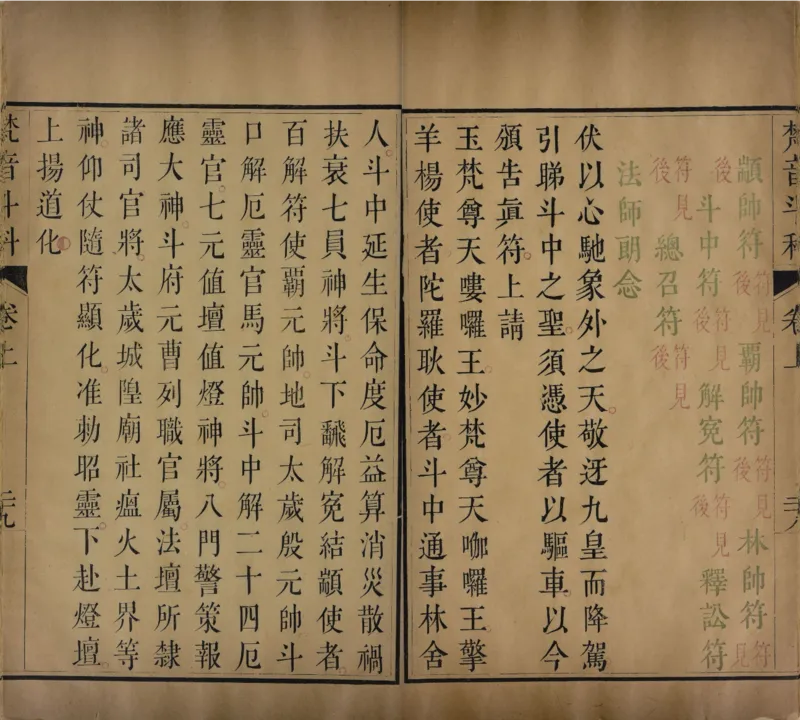 梵音斗科 卷上
顓帥符符見後 覇帥符符見後 林帥符符見
後 斗中符符見後 解寃符符見後 釋訟符
符見後 總召符符見後
法師朗念
伏以心馳象外之天。敬迓九皇而降駕
引睇斗中之聖。須憑使者以驅車。以今
頒告眞符。上請
玉梵尊天嘍囉王。妙梵尊天咖囉王。擎
羊楊使者。陀羅耿使者。斗中通事林舍
人。斗中延生保命度厄益算消災散禍
扶衰七員神將。斗下飜解寃結顓使者。
百解符使覇元帥。地司太歲殷元帥。斗
口解厄靈官馬元帥。斗中解二十四厄
靈官。七元值壇值燈神將。八門警策報
應大神。斗府元曹列職官屬。法壇所隸
諸司官將。太歲城隍廟社瘟火土界等
神。仰仗隨符顯化。准勅昭靈。下赴燈壇。
上揚道化。
梵音斗科 卷上